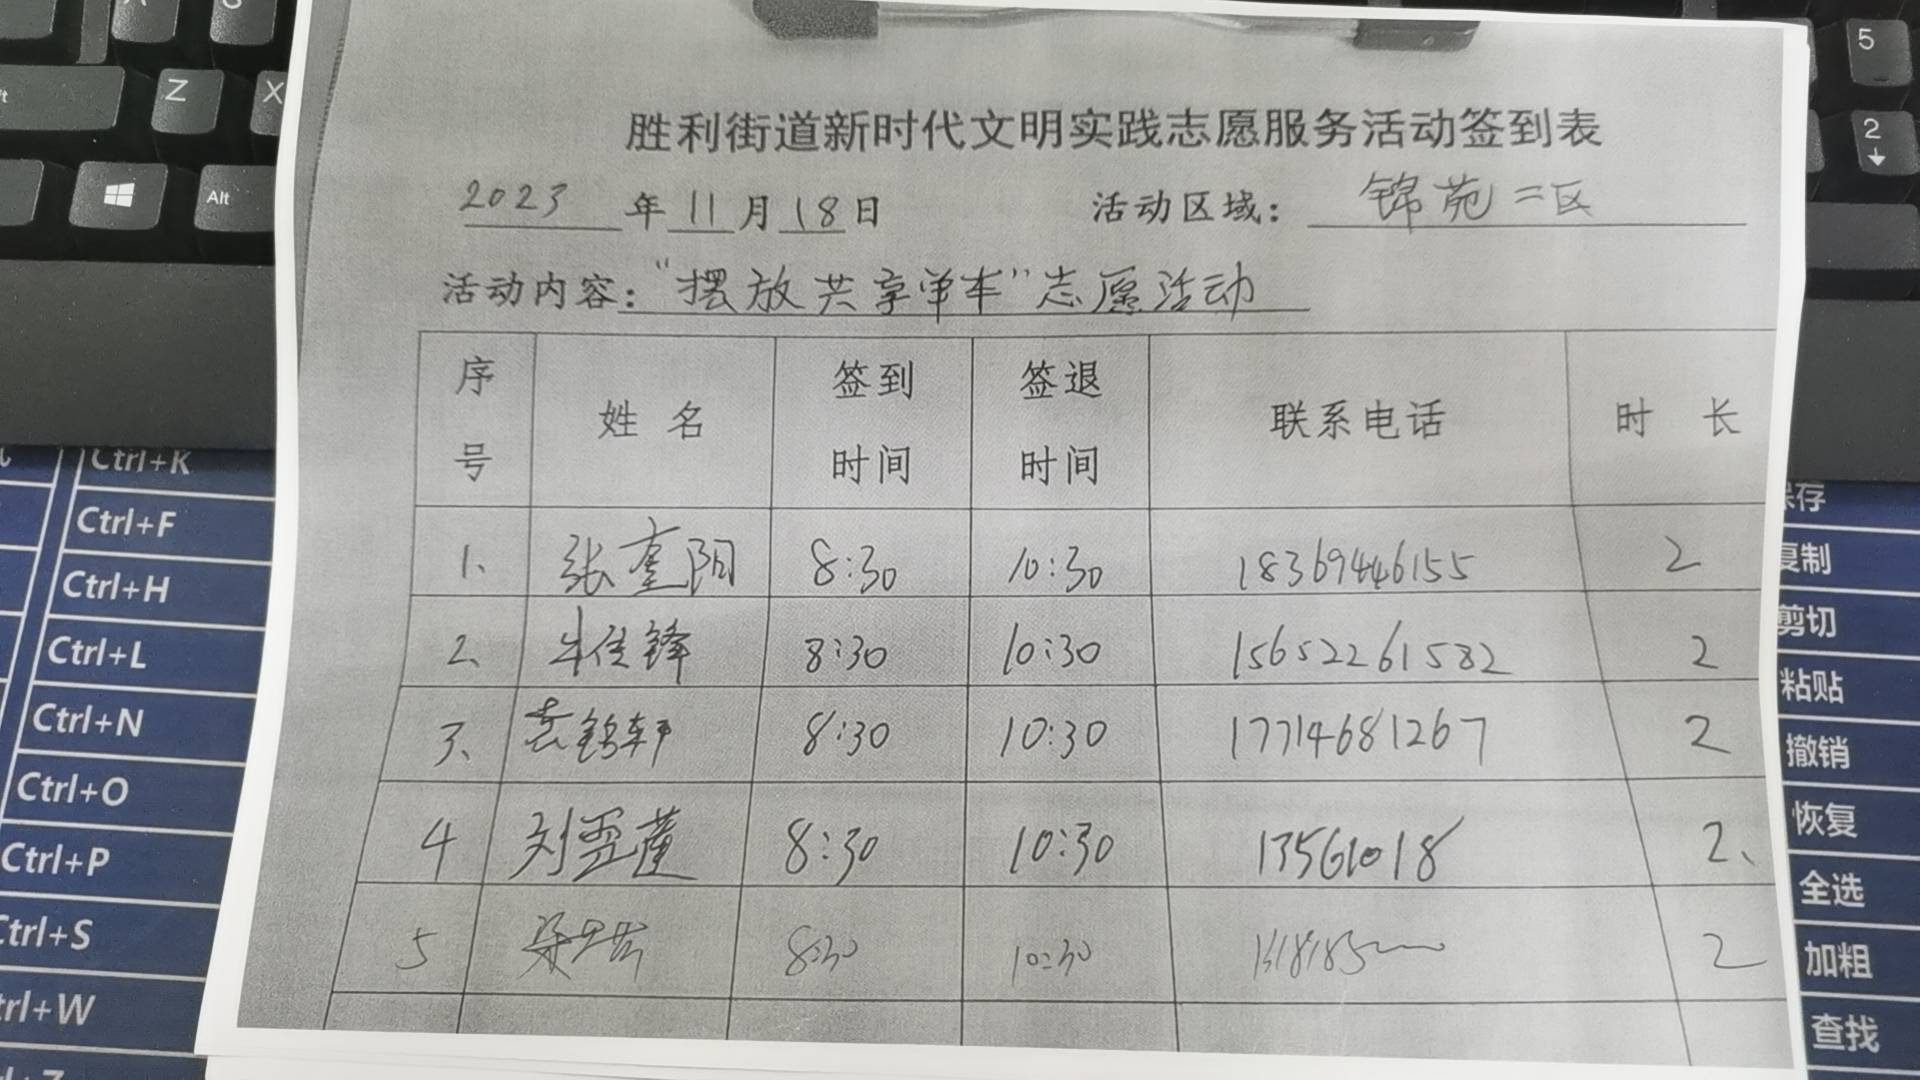 胜利街道新时代文明实践志愿服务活动签到表
2023年11月18日 活动区域：锦苑二区
活动内容："摆放共享单车"志愿活动
序号 姓名 签到时间 签退时间 联系电话 时长
1、 张奎阳 8:30 10:30 18369446155 2
2、 牛佳锋 8:30 10:30 15652261582 2
3、 袁锦轩 8:30 10:30 17714681267 2
4 刘雲 8:30 10:30 13561018 2、
5 8:30 10:30 2
Z
X
Alt
5
2
Ctrl+K
Ctrl+F
Ctrl+H
Ctrl+L
Ctrl+N
Ctrl+O
Ctrl+P
Ctrl+S
Ctrl+W
保存
复制
剪切
粘贴
撤销
恢复
全选
加粗
查找